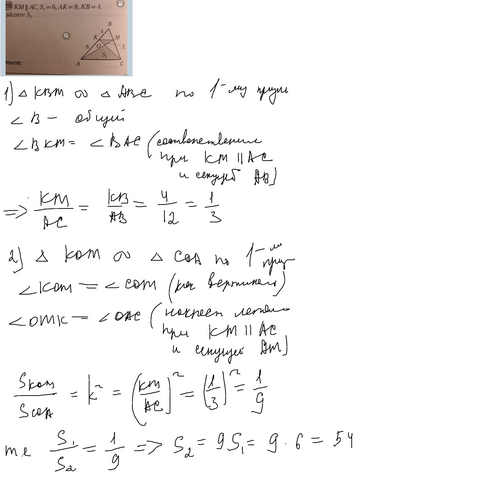 KM || AC, S₁ = 6, AK = 8, KB = 4.
B
K M
O
S₁
A C
1) △ KBM ∾ △ ABC по 1-му призн
∠ B – общий
∠ BKM = ∠ BAC (соответственные
при KM || AC
и секущей AB)
=> KM/AC = KB/AB = 4/12 = 1/3
2) △ KOM ∾ △ COA по 1-му приз
∠KOM = ∠COM (как вертикал)
∠OMK = ∠OAC (накрест лежащ
при KM || AC
и секущей AM)
Sком/Sсоа = k² = (KM/AC)² = (1/3)² = 1/9
те S₁/S₂ = 1/9 => S₂ = 9S₁ = 9 · 6 = 54